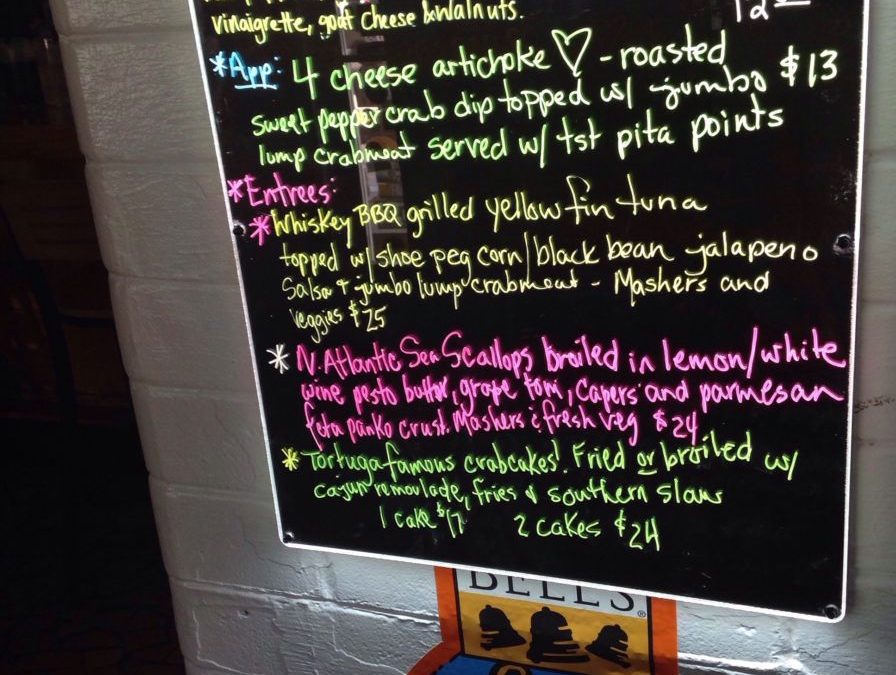 vinaigrette, goat cheese & walnuts.
12
*App: 4 cheese artichoke ♡ - roasted $13
sweet pepper crab dip topped w/ jumbo
lump crabmeat served w/ tst pita points
*Entrees:
*Whiskey BBQ grilled yellow fin tuna
topped w/ shoe peg corn/black bean jalapeno
Salsa + jumbo lump crabmeat - Mashers and
veggies $25
*N. Atlantic Sea Scallops broiled in lemon/white
wine pesto butter, grape tom, capers and parmesan
feta panko crust. Mashers & fresh veg $24
*Tortuga famous crabcakes! Fried or broiled w/
cajun remoulade, fries & southern slaw
1 cake $17 2 cakes $24
BELL'S®